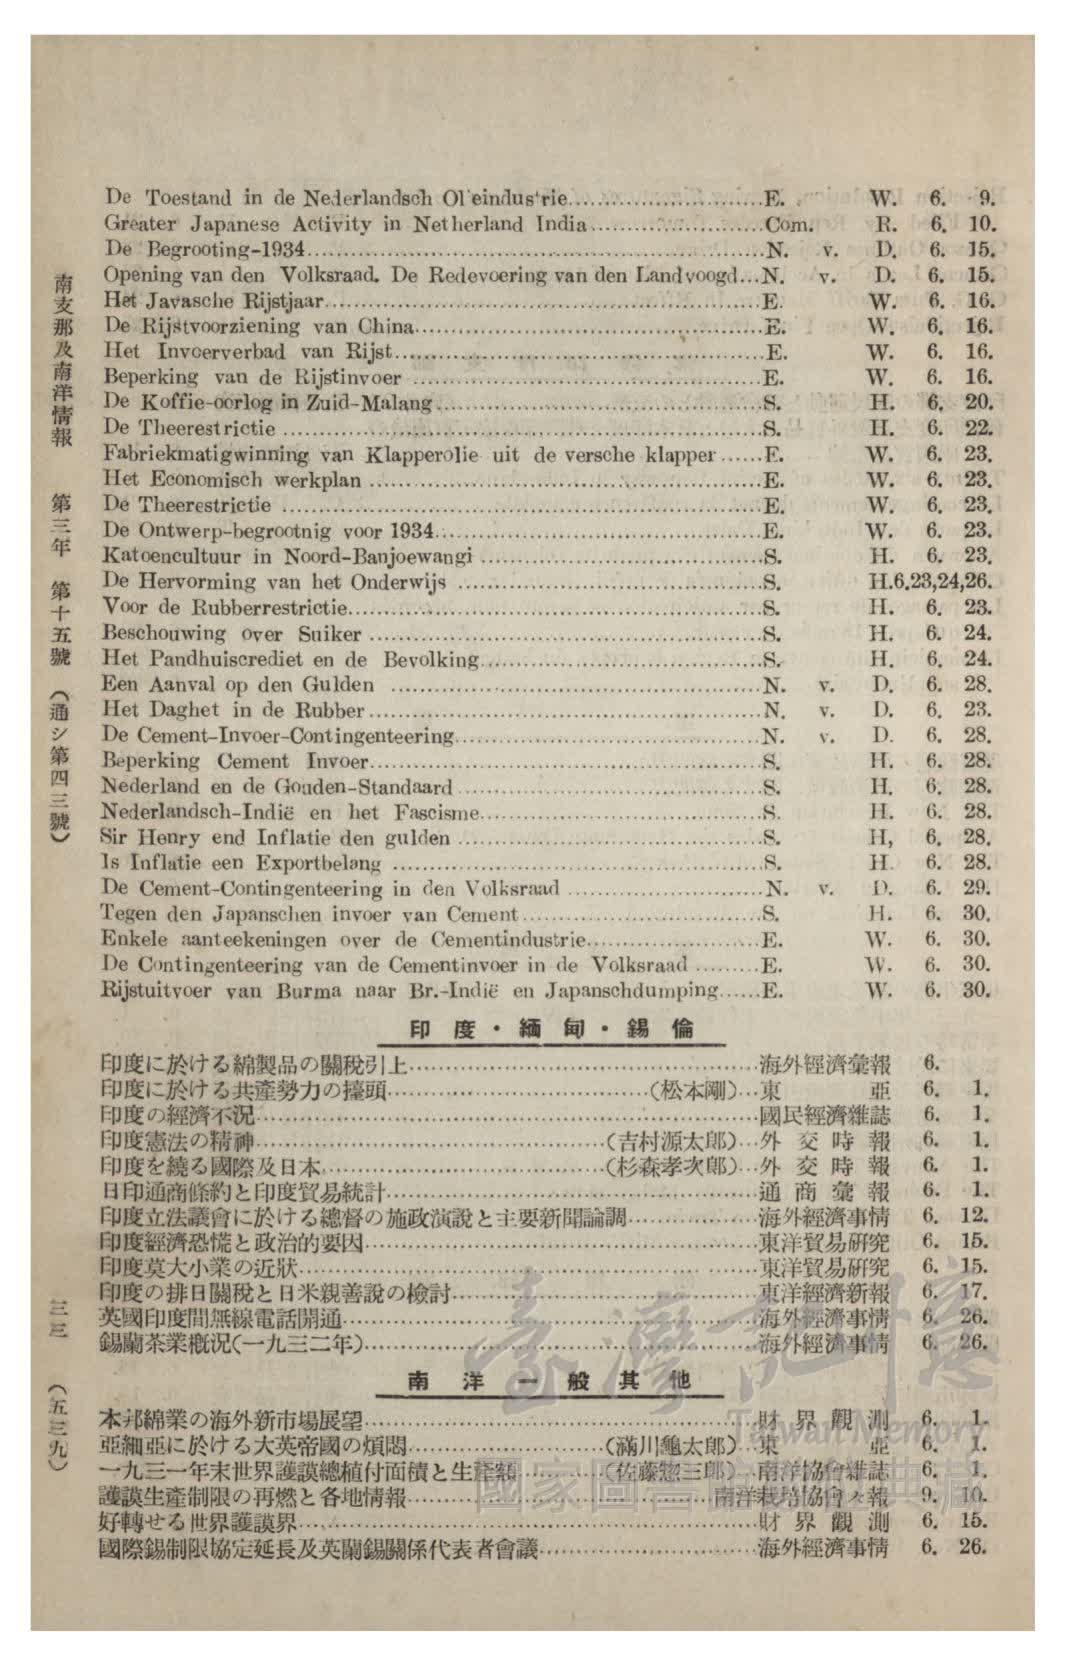 De Toestand in de Nederlandsch Ol'eindus'rie..............................E. W. 6. 9.
Greater Japanese Activity in Netherland India..........................Com. R. 6. 10.
De Begrooting-1934..................................................................N. v. D. 6. 15.
Opening van den Volksraad. De Redevoering van den Landvoogd...N. v. D. 6. 15.
Het Javasche Rijstjaar...............................................................E. W. 6. 16.
De Rijstvoorziening van China..................................................E. W. 6. 16.
Het Invoerverbad van Rijst.....................................................E. W. 6. 16.
Beperking van de Rijstinvoer ..................................................E. W. 6. 16.
De Koffie-oorlog in Zuid-Malang...............................................S. H. 6. 20.
De Theerestrictie .....................................................................S. H. 6. 22.
Fabriekmatigwinning van Klapperolie uit de versche klapper ......E. W. 6. 23.
Het Economisch werkplan .........................................................E. W. 6. 23.
De Theerestrictie .....................................................................E. W. 6. 23.
De Ontwerp-begrootnig voor 1934...............................................E. W. 6. 23.
Katoencultuur in Noord-Banjoewangi .........................................S. H. 6. 23.
De Hervorming van het Onderwijs ............................................S. H.6.23,24,26.
Voor de Rubberrestrictie............................................................S. H. 6. 23.
Beschouwing over Suiker .........................................................S. H. 6. 24.
Het Pandhuiscrediet en de Bevolking.........................................S. H. 6. 24.
Een Aanval op den Gulden ......................................................N. v. D. 6. 28.
Het Daghet in de Rubber.........................................................N. v. D. 6. 23.
De Cement-Invoer-Contingenteering............................................N. v. D. 6. 28.
Beperking Cement Invoer.........................................................S. H. 6. 28.
Nederland en de Gouden-Standaard............................................S. H. 6. 28.
Nederlandsch-Indië en het Fascisme.........................................S. H. 6. 28.
Sir Henry end Inflatie den gulden ............................................S. H, 6. 28.
Is Inflatie een Exportbelang ...................................................S. H. 6. 28.
De Cement-Contingenteering in den Volksraad ...........................N. v. D. 6. 29.
Tegen den Japanschen invoer van Cement..................................S. H. 6. 30.
Enkele aanteekeningen over de Cementindustrie.........................E. W. 6. 30.
De Contingenteering van de Cementinvoer in de Volksraad .........E. W. 6. 30.
Rijstuitvoer van Burma naar Br.-Indië en Japanschdumping......E. W. 6. 30.
印度・緬甸・錫倫
印度に於ける綿製品の關稅引上…………………………海外經濟彙報 6.
印度に於ける共產勢力の擡頭…………………（松本剛）…東亞 6. 1.
印度の經濟不況…………………………………………國民經濟雜誌 6. 1.
印度憲法の精神…………………………（吉村源太郎）…外交時報 6. 1.
印度を繞る國際及日本…………………（杉森孝次郎）…外交時報 6. 1.
日印通商條約と印度貿易統計……………………………通商彙報 6. 1.
印度立法議會に於ける總督の施政演說と主要新聞論調…………海外經濟事情 6. 12.
印度經濟恐慌と政治的要因………………………………東洋貿易研究 6. 15.
印度莫大小業の近狀……………………………………東洋貿易研究 6. 15.
印度の排日關稅と日米親善說の檢討……………………東洋經濟新報 6. 17.
英國印度間無線電話開通…………………………………海外經濟事情 6. 26.
錫蘭茶業槪況（一九三二年）……………………………海外經濟事情 6. 26.
南洋一般其他
本邦綿業の海外新市場展望………………………………財界觀測 6. 1.
亞細亞に於ける大英帝國の煩悶……………（滿川龜太郎）…東亞 6. 1.
一九三一年末世界護謨總植付面積と生產額………（佐藤惣三郎）…南洋協會雜誌 6. 1.
護謨生產制限の再燃と各地情報……………………南洋栽培協會々報 9. 10.
好轉せる世界護謨界………………………………………財界觀測 6. 15.
國際錫制限協定延長及英蘭錫關係代表者會議……………海外經濟事情 6. 26.
南支那及南洋情報 第三年 第十五號（通シ第四三號） 三三 （五三九）
臺灣記憶
Taiwan Memory
國家圖書館